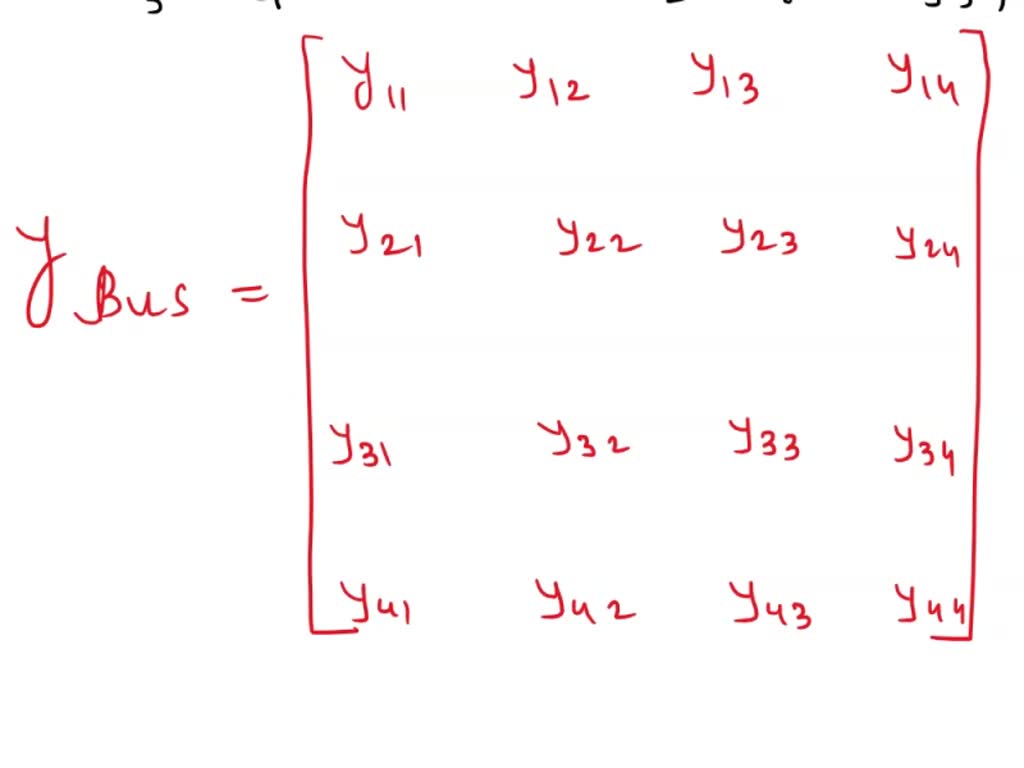 y11 y12 y13 y14
y21 y22 y23 y24
y Bus =
y31 y32 y33 y34
y41 y42 y43 y44